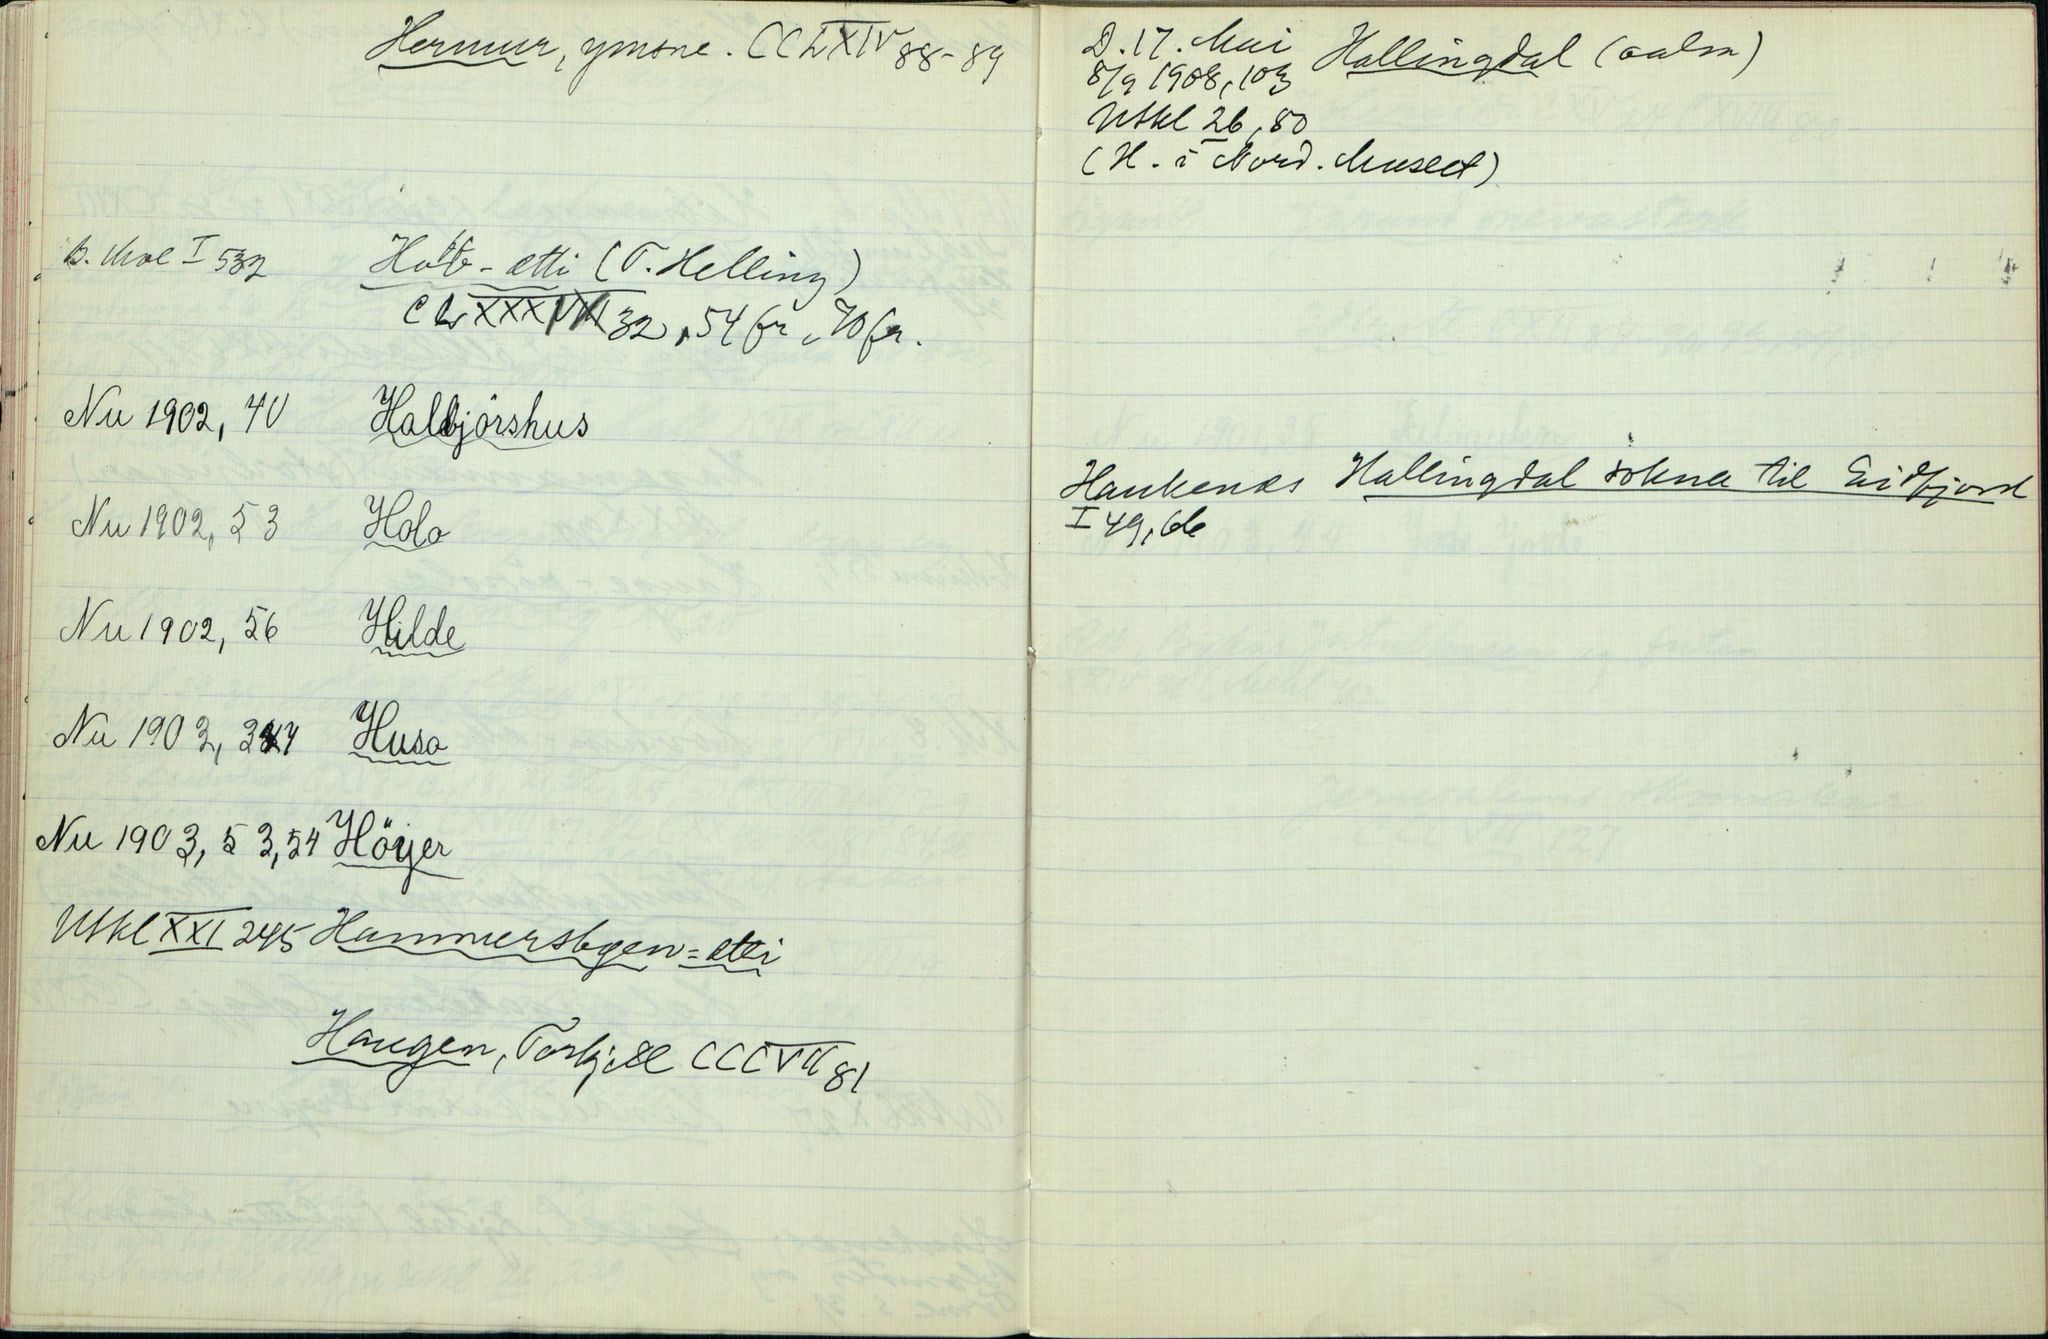 Hermur, ymsne. CCLXIV 88-89
B. Moe I 532 Hoff-ætti (T. Helling)
XXXVIII 32, 54 fr, 70 fr.
Nu 1902, 40 Halbjörshus
Nu 1902, 53 Holo
Nu 1902, 56 Hilde
Nu 1903, Huso
Nu 1903, 53,54 Höijer
Utkl XXI 245 Hammersbøen=ætti
Haugen, Torkjell CCCVII 81
D. 17. Mai Hallingdal (aalm)
8/9 1908, 103
Utkl 26, 80
(H. i Nord. Museet)
Haukenæs Hallingdal sokna til Eidfjord
I 49, 66